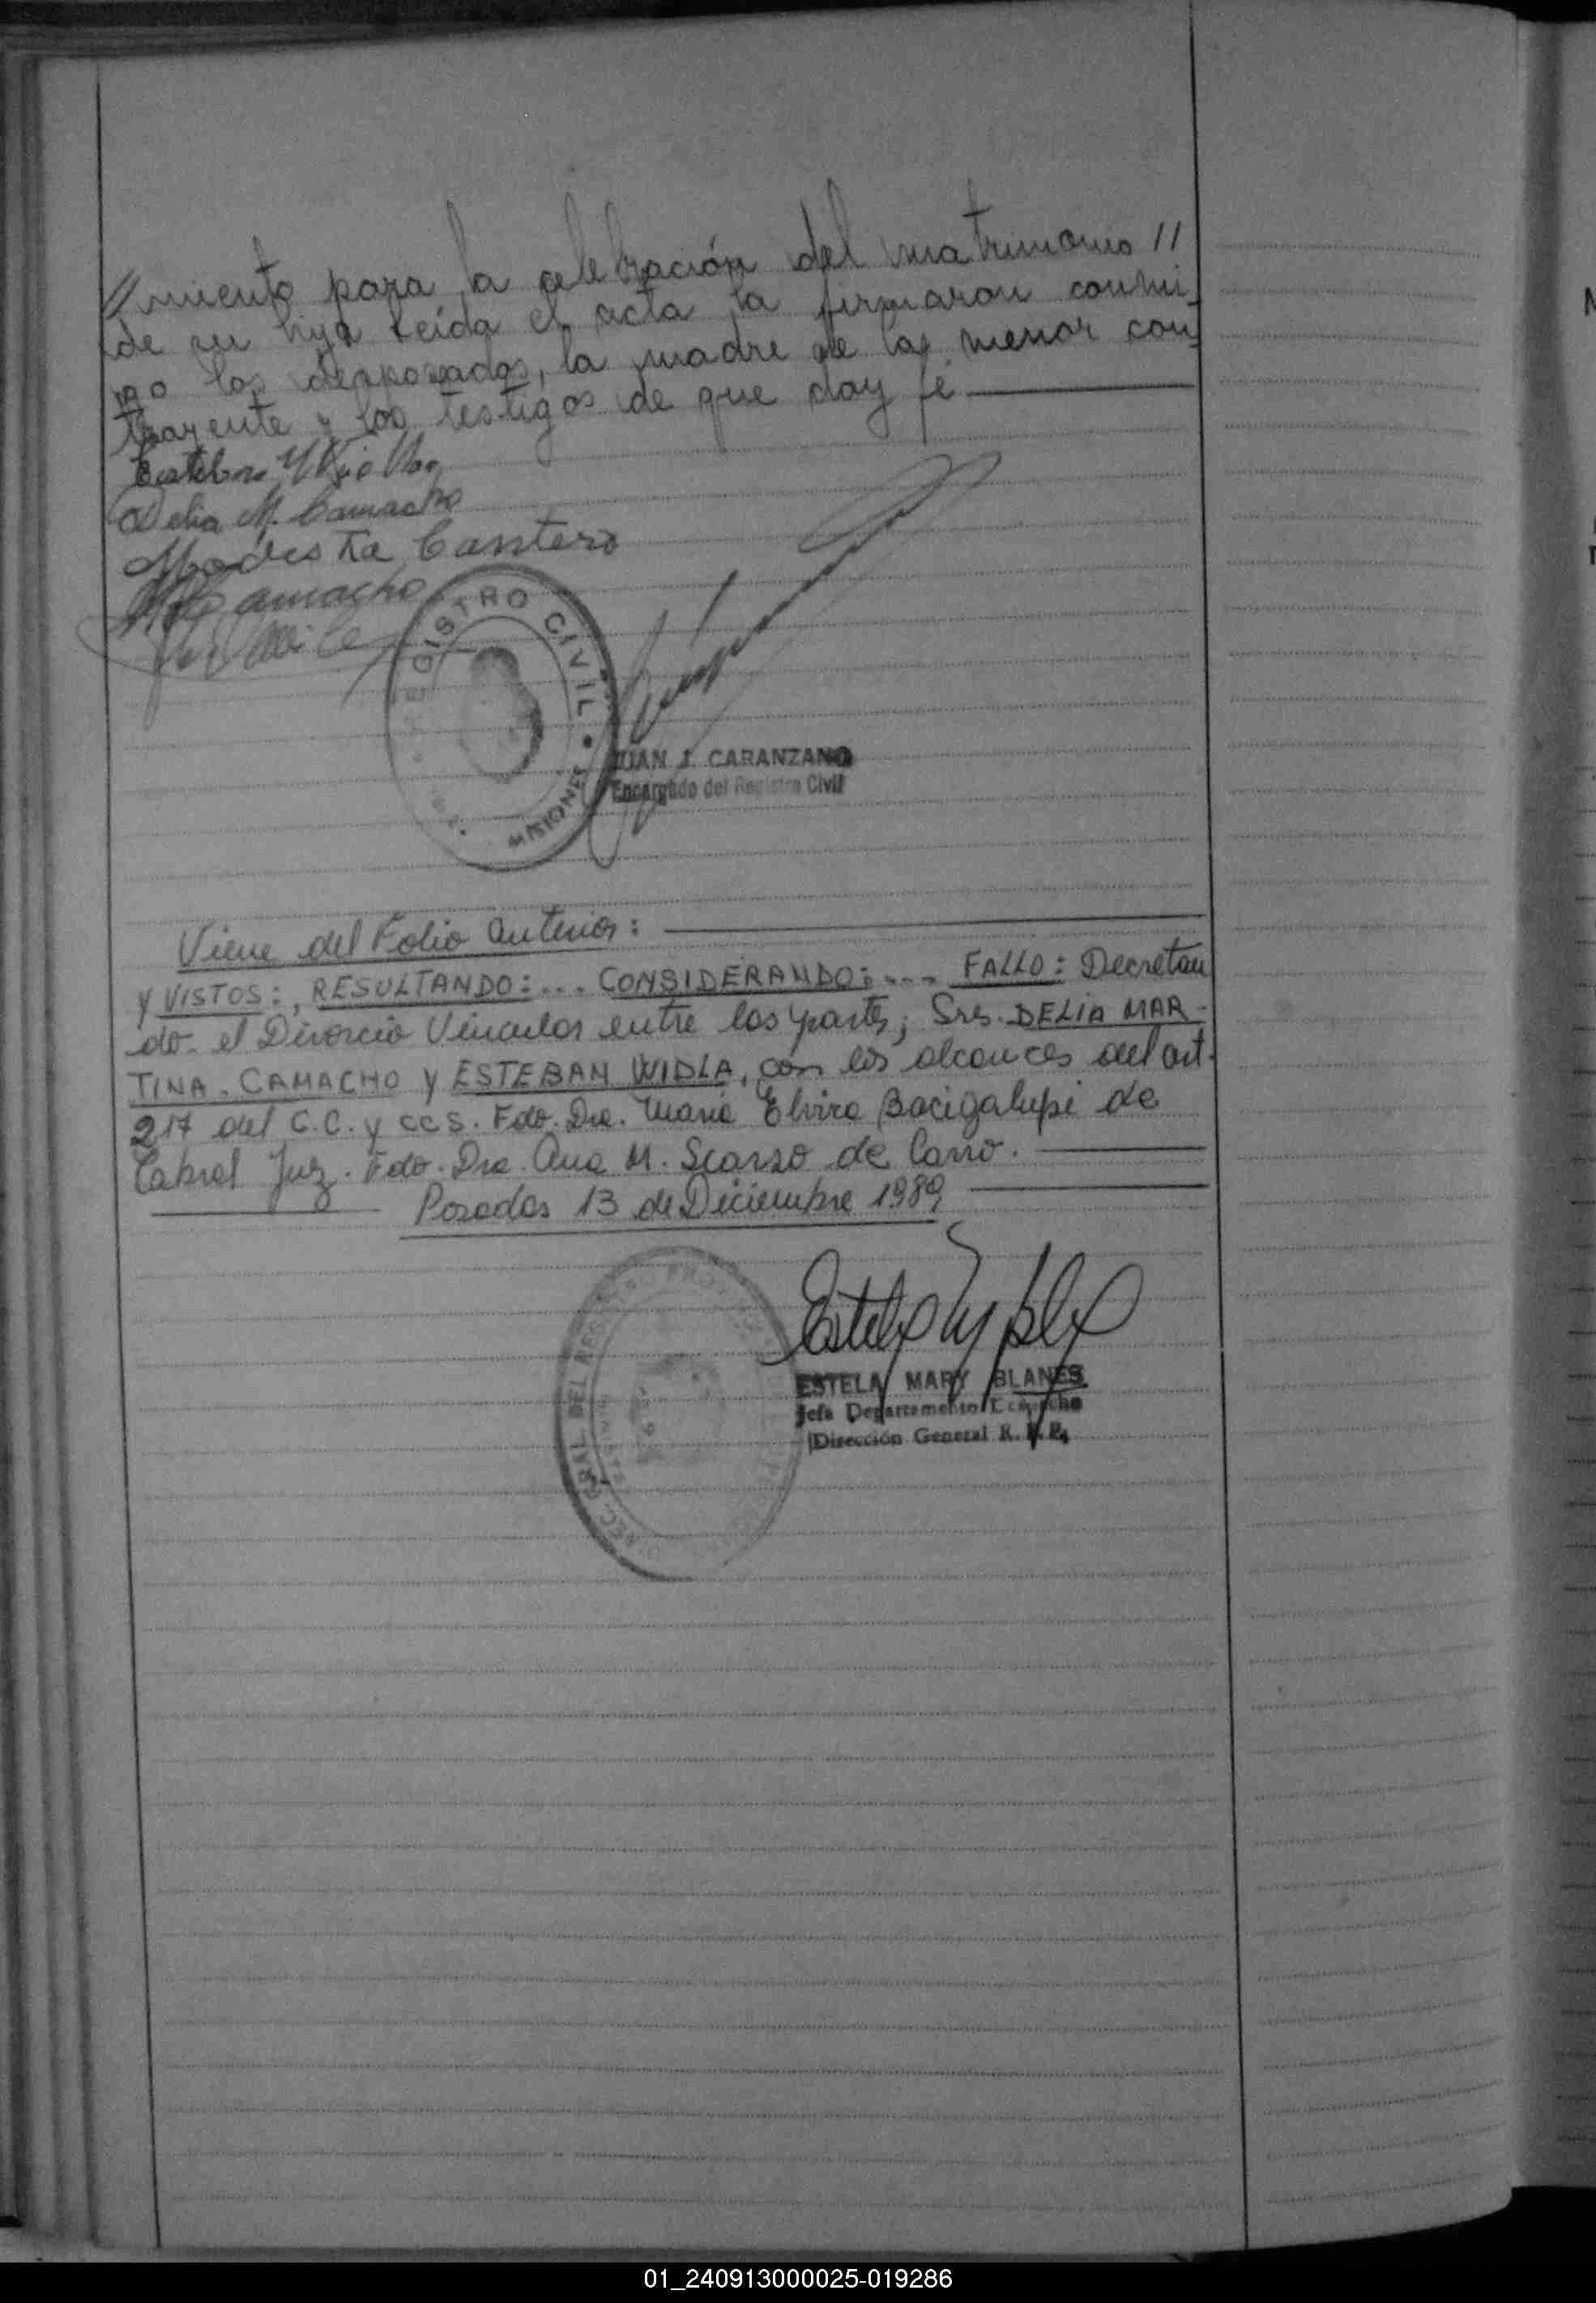 //miento para la celebración del matrimonio //
de su hija leída el acta la firmaron conmi-
go los desposados, la madre de la menor con-
trayente y los testigos de que doy fé
Esteban
Delia M. Camacho
Modesta Cantero
Camacho
REGISTRO CIVIL
MISIONES
JUAN J. CARANZANO
Encargado del Registro Civil
Viene del Folio anterior:
Y VISTOS:, RESULTANDO:... CONSIDERANDO:... FALLO: Decretan
do el Divorcio Vincular entre las partes; Sres. DELIA MAR-
TINA CAMACHO Y ESTEBAN WIDLA, con los alcances del art.
217 del C.C. y ccs. Fdo. Dra. Maria Elvira Bacigalupi de
Cabral Juz. Fdo. Dra. Ana M. Scarso de Carro.
Posadas 13 de Diciembre 1989
ESTELA MARY BLANES
Jefa Departamento Despacho
Dirección General R. P. P.
01_240913000025-019286